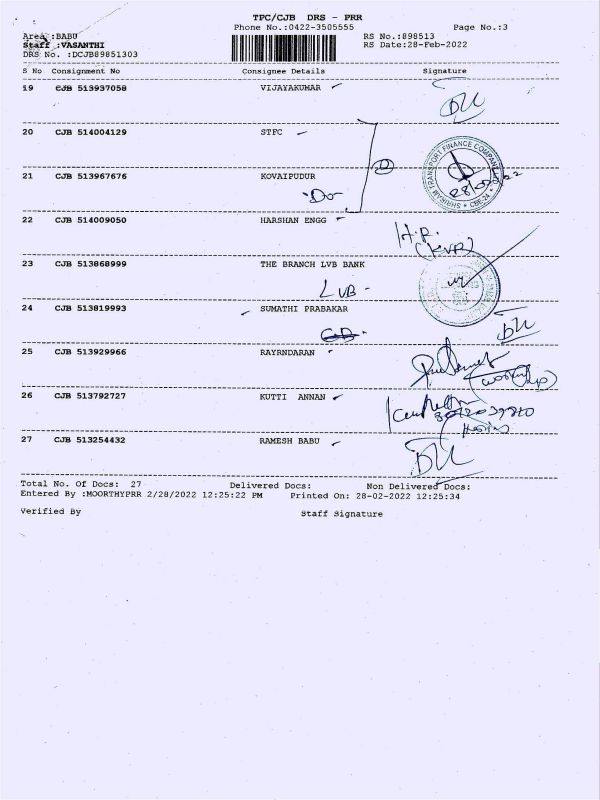 TPC/CJB DRS - PRR
Phone No.:0422-3505555 Page No.:3
Area :BABU RS No.:898513
Staff :VASANTHI RS Date:28-Feb-2022
DRS No. :DCJB89851303
S No Consignment No Consignee Details Signature
19 CJB 513937058 VIJAYAKUMAR
20 CJB 514004129 STFC
21 CJB 513967676 KOVAIPUDUR
-Do-
SHRIRAM TRANSPORT FINANCE COMPANY * CBE-24 *
22 CJB 514009050 HARSHAN ENGG
H.R.
(KVR)
23 CJB 513868999 THE BRANCH LVB BANK
LVB -
24 CJB 513819993 SUMATHI PRABAKAR
25 CJB 513929966 RAYRNDARAN
26 CJB 513792727 KUTTI ANNAN
27 CJB 513254432 RAMESH BABU
Total No. Of Docs: 27 Delivered Docs: Non Delivered Docs:
Entered By :MOORTHYPRR 2/28/2022 12:25:22 PM Printed On: 28-02-2022 12:25:34
Verified By Staff Signature